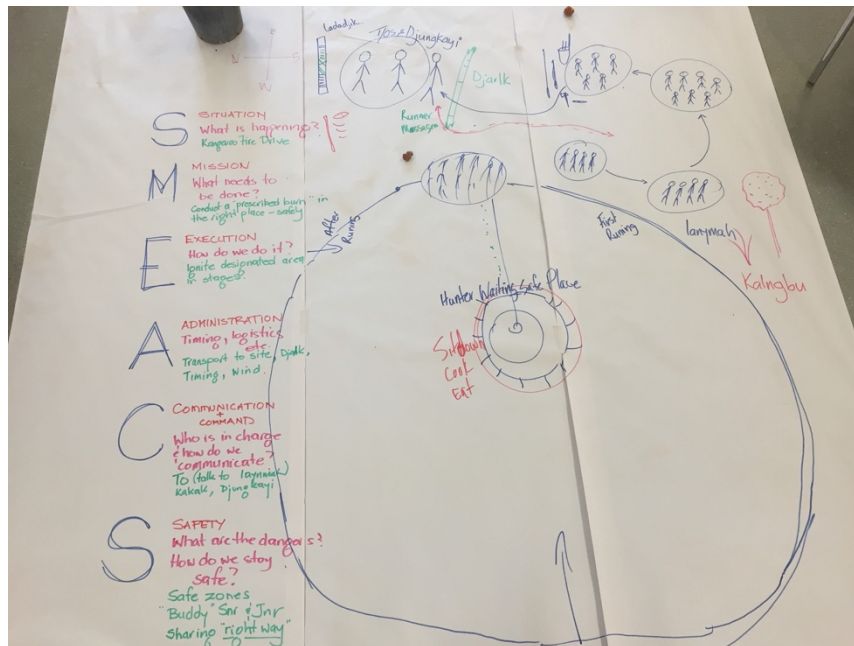 S
SITUATION
What is happening?
Kangaroo Fire Drive
M
MISSION
What needs to
be done?
Conduct a "prescribed burn" in
the right place - safely
E
EXECUTION
How do we do it?
Ignite designated area
in stages.
A
ADMINISTRATION
Timing, logistics
etc.
Transport to site, Djalk,
Timing, Wind.
C
COMMUNICATION
+
COMMAND
Who is in charge
& how do we
communicate?
TO (talk to
Kakak, Djungkayi
S
SAFETY
What are the dangers?
How do we stay
safe?
Safe zones
"Buddy" Snr & Jnr
Sharing "right way"
W
& Djungkayi
Djarlk
Runner
After
First
lanymah
Kalngbu
Hunter Waiting Safe
Sitdown
Cook
Eat